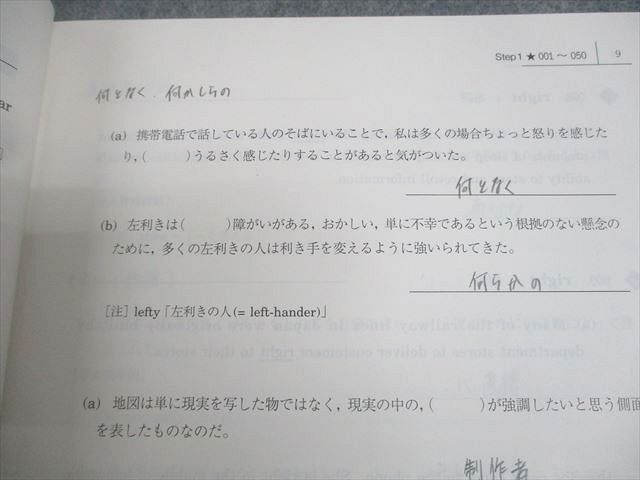 Step 1 ★ 001 ～ 050 9
何となく. 何かしらの
(a) 携帯電話で話している人のそばにいることで, 私は多くの場合ちょっと怒りを感じた
り, ( )うるさく感じたりすることがあると気がついた。
何となく
(b) 左利きは( )障がいがある, おかしい, 単に不幸であるという根拠のない懸念の
ために, 多くの左利きの人は利き手を変えるように強いられてきた。
何らかの
［注］lefty「左利きの人(= left-hander)」
(a) 地図は単に現実を写した物ではなく, 現実の中の, ( )が強調したいと思う側面
を表したものなのだ。
制作者
ar